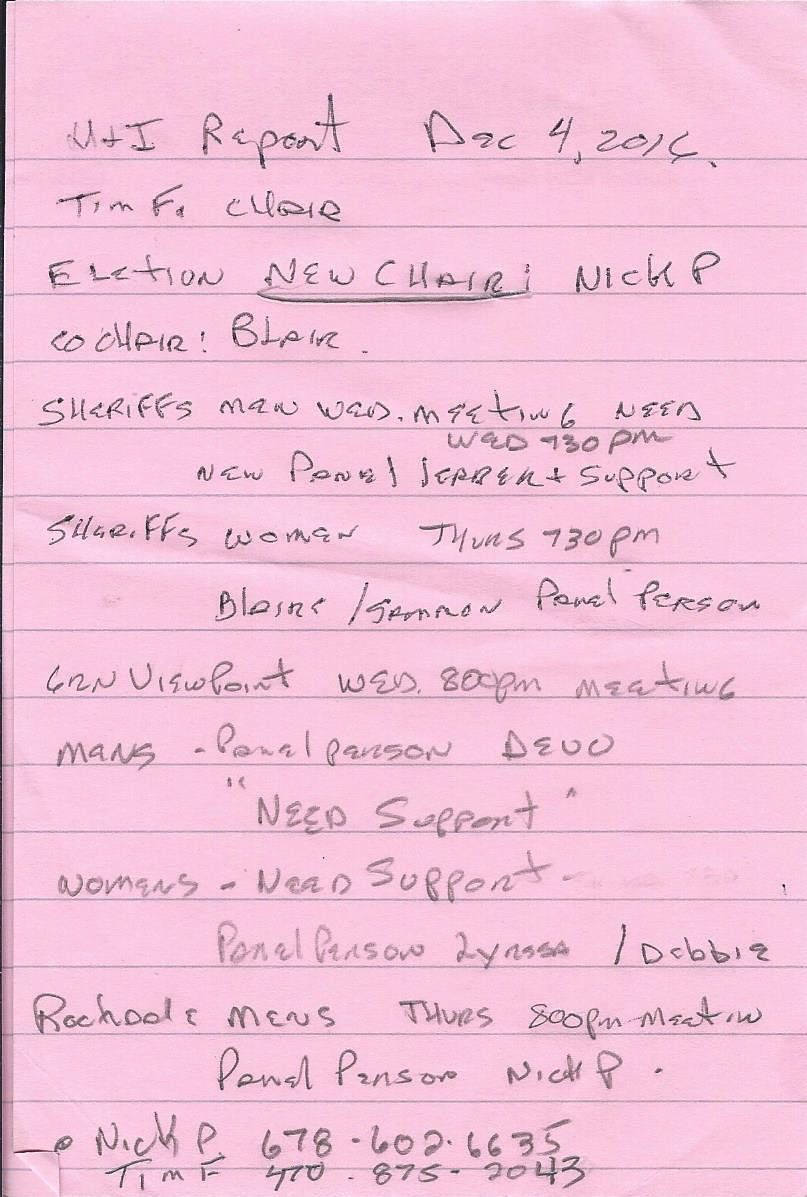 H+I Report Dec 4, 2016.
Tim F. CHAIR
ELECTION NEW CHAIR: NICK P
CO CHAIR: BLAIR.
SHERIFFS MEN WED. MEETING NEED
WED 730 PM
NEW PANEL + SUPPORT
SHERIFFS WOMEN THURS 730 PM
/ Panel PERSON
GRN VIEWPOINT WED. 800pm MEETING
MENS - Panel person DEVO
"NEED Support"
WOMENS - NEED Support -
Panel Person / Debbie
Rockdale MENS THURS 800pm Meetin
Panel Person Nick P.
• Nick P. 678-602-6635
Tim F 470-875-2043